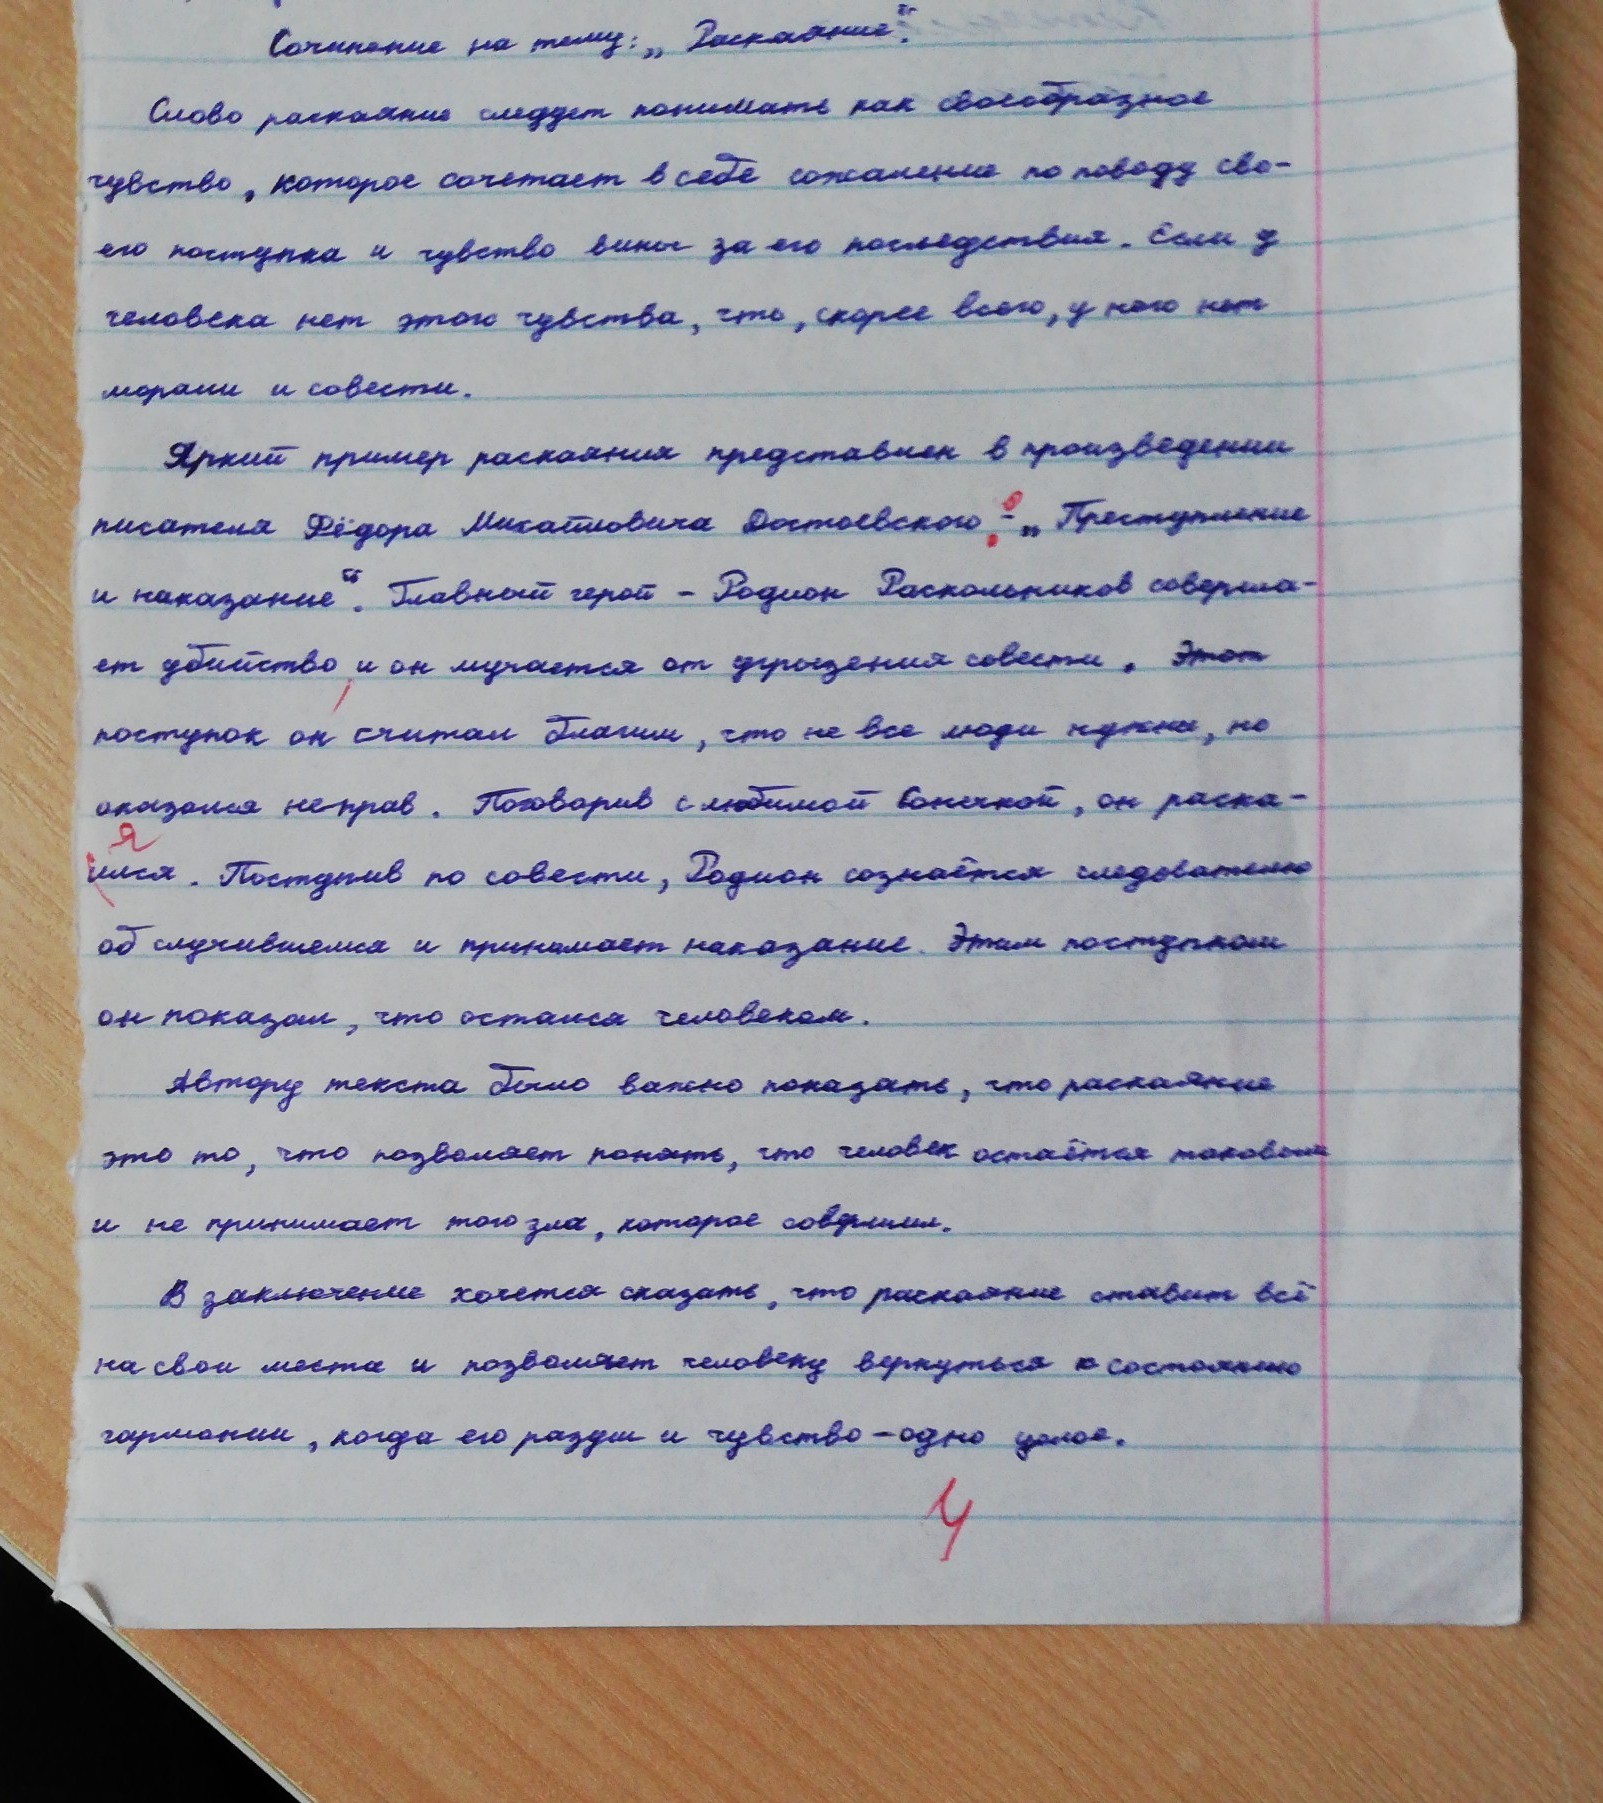 Сочинение на тему: „Раскаяние“.
Слово раскаяние следует понимать как своеобразное
чувство, которое сочетает в себе сожаление по поводу сво-
его поступка и чувство вины за его последствия. Если у
человека нет этого чувства, что, скорее всего, у него нет
морали и совести.
Яркий пример раскаяния представлен в произведении
писателя Фёдора Михайловича Достоевского - „Преступление
и наказание“. Главный герой - Родион Раскольников соверша-
ет убийство и он мучается от угрызения совести. Этот
поступок он считал благим, что не все люди нужны, но
оказался не прав. Поговорив с любимой Сонечкой, он раска-
я
ился. Поступив по совести, Родион сознаётся следователю
об случившемся и принимает наказание. Этим поступком
он показал, что остался человеком.
Автору текста было важно показать, что раскаяние
это то, что позволяет понять, что человек остаётся таковым
и не принимает того зла, которое совершил.
В заключение хочется сказать, что раскаяние ставит всё
на свои места и позволяет человеку вернуться к состоянию
гармонии, когда его разум и чувство - одно целое.
4